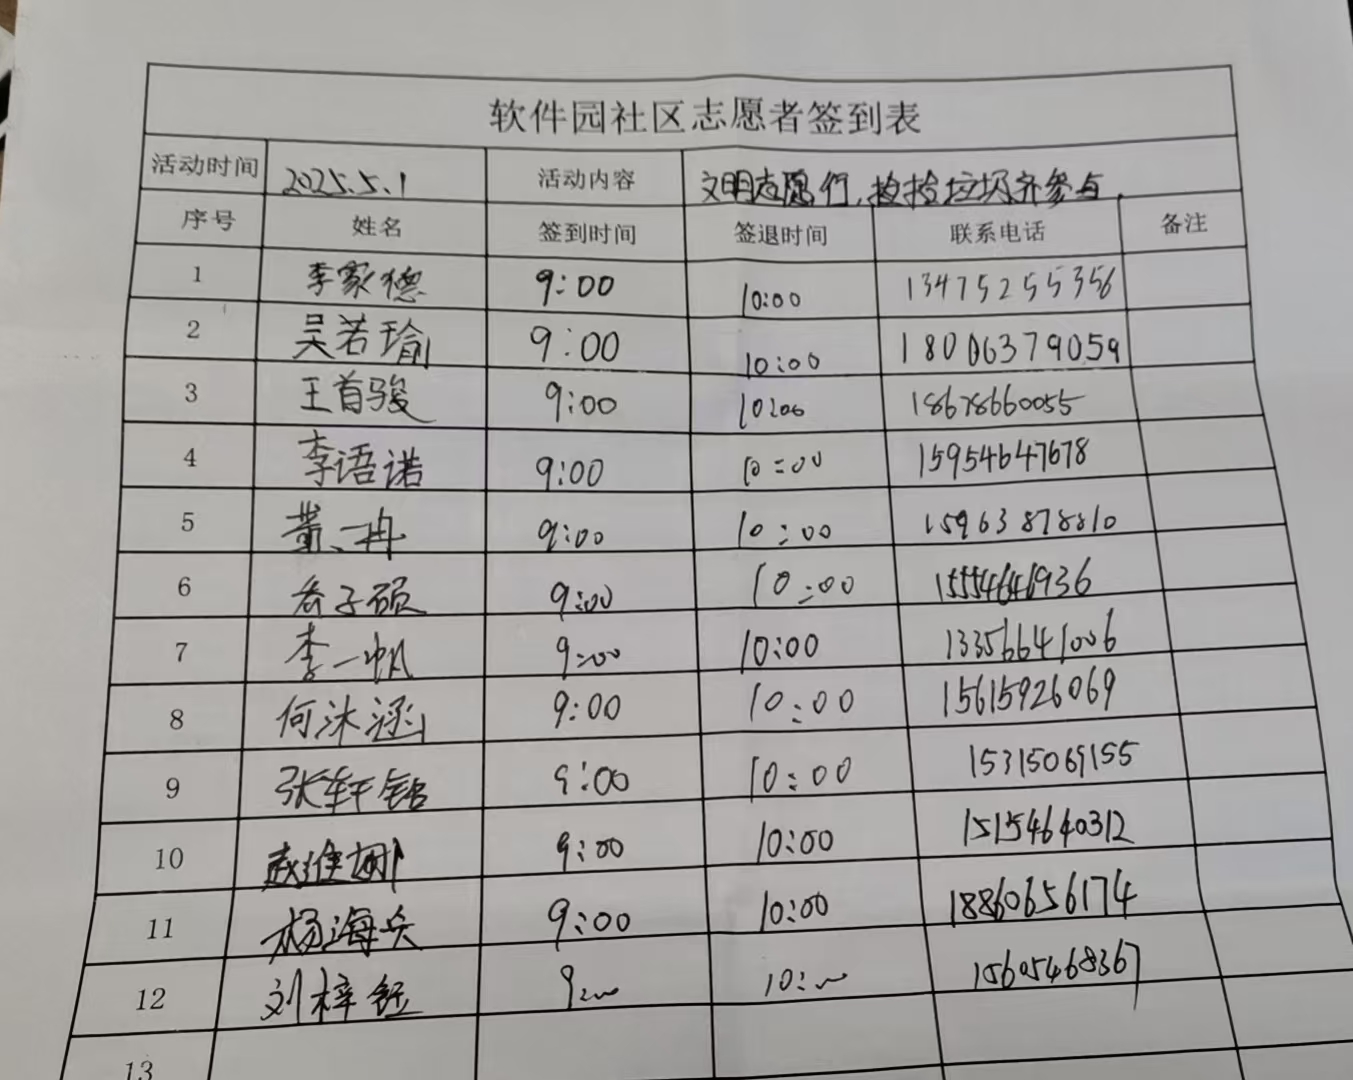 软件园社区志愿者签到表
活动时间 2025.5.1 活动内容 文明志愿们，捡捡垃圾齐参与．
序号 姓名 签到时间 签退时间 联系电话 备注
1 李家德 9:00 10:00 13475255356
2 吴若瑜 9:00 10:00 18006379059
3 王首骏 9:00 10:00 18678660055
4 李语诺 9:00 10:00 15954647678
5 董一冉 9:00 10:00 15963878810
6 乔子硕 9:00 10:00 15554646936
7 李一帆 9:00 10:00 13356641006
8 何沐涵 9:00 10:00 15615926069
9 张轩铭 9:00 10:00 15315069155
10 赵维娜 9:00 10:00 15154640312
11 杨海兵 9:00 10:00 18860656174
12 刘梓钰 9:00 10:00 15605468367
13